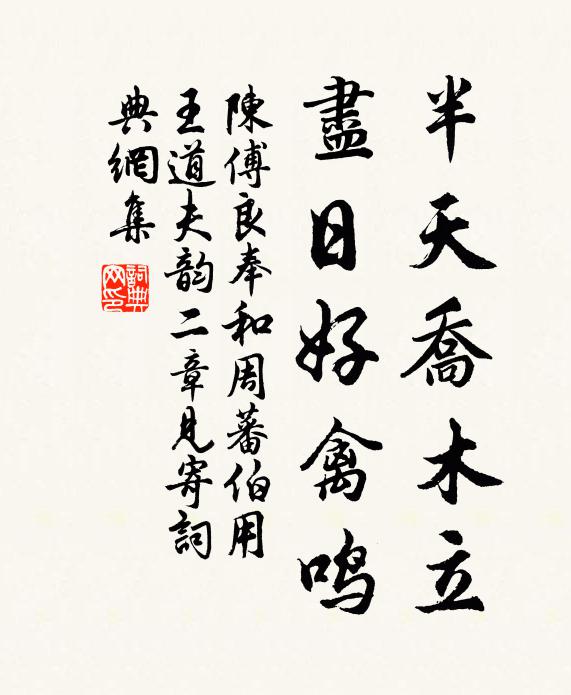 半天喬木立
盡日好禽鳴
陳傅良奉和周蕃伯用
王道夫韵二章見寄詞
典網集
詞典
网印